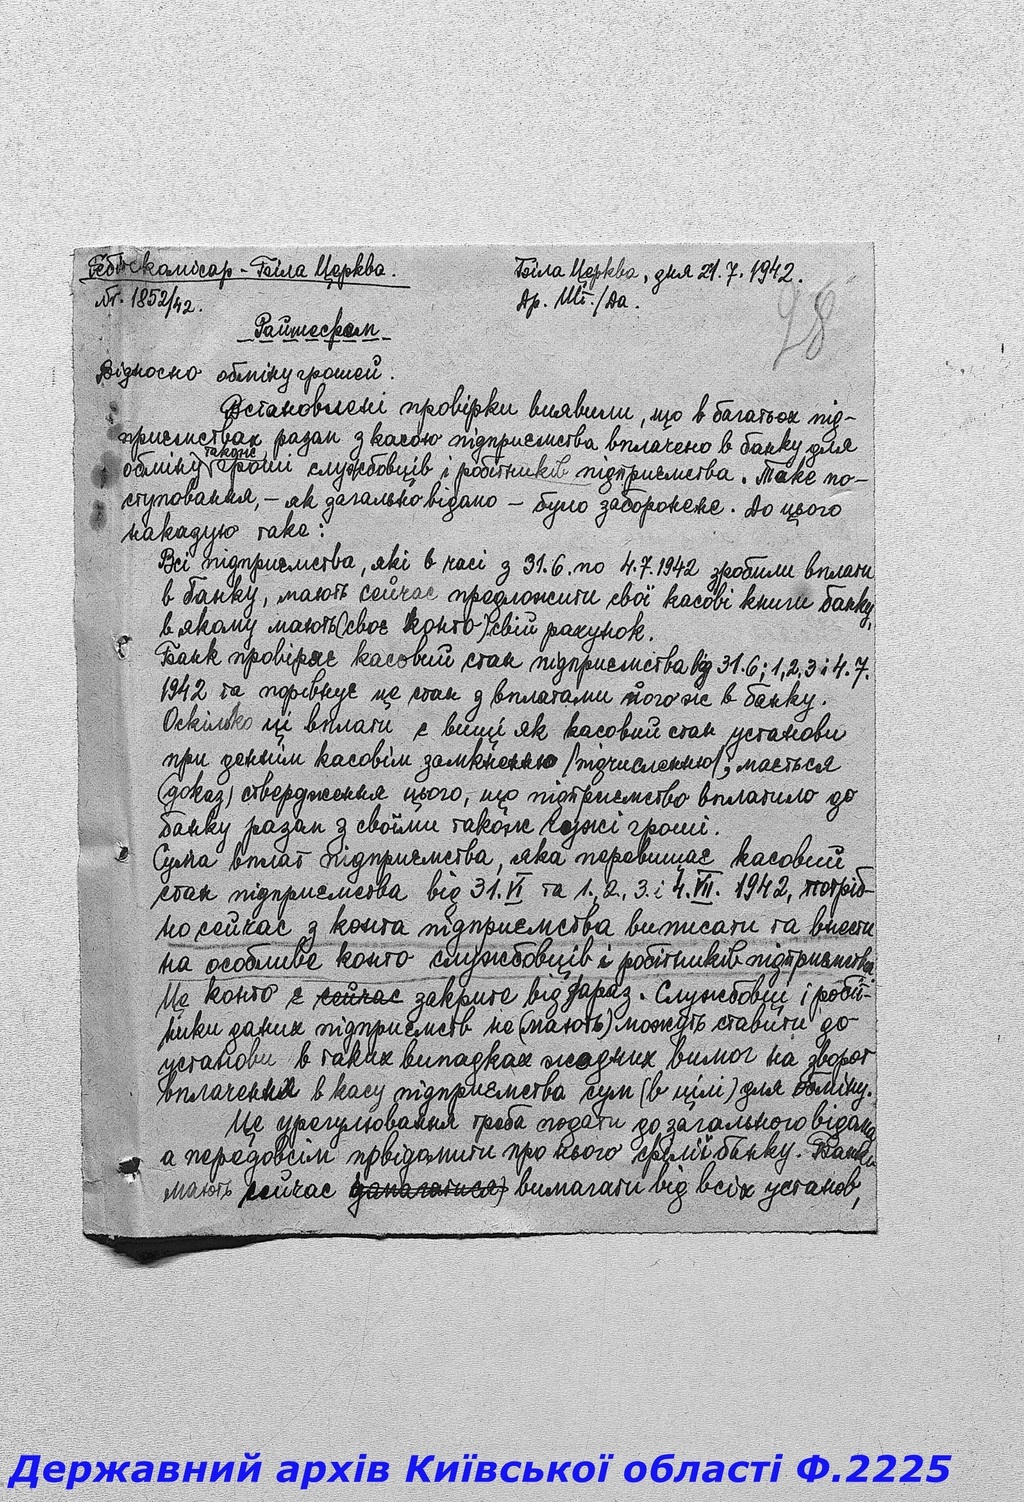 Гебітскомісар - Біла Церква.
Біла Церква, дня 21.7.1942.
Nr. 1852/42.
Др. Шт./Да.
28
Райшефам
Відносно обміну грошей.
Встановлені провірки виявили, що в багатьох під-
приємствах разам з касою підприємства вплачено в банку для
обміну також гроші службовців і робітників підприємства. Таке по-
ступовання, - як загально відано - було заборонене. До цього
наказую таке:
Всі підприємства, які в часі з 31.6. по 4.7.1942 зробили вплати
в Банку, мають сейчас предложити свої касові книги банку,
в якому мають (своє конто) свій рахунок.
Банк провіряє касовий стан підприємства від 31.6; 1,2,3 і 4.7.
1942 та порівнує це стан з вплатами його ж в банку.
Оскілько ці вплати є вищі як касовий стан установи
при деннім касовім замкненню /підчисленню/, мається
(доказ) ствердження цього, що підприємство вплатило до
банку разам з своїми також чужі гроші.
Сума вплат підприємства, яка перевищає касовий
стан підприємства від 31.VI та 1, 2, 3 і 4.VII. 1942, потріб-
но сейчас з конта підприємства виписати та внести
на особливе конто службовців і робітників підприємства.
Це конто є сейчас закрите відзараз. Службовці і робіт-
ники даних підприємств не (мають) можуть ставити до
установи в таких випадках жадних вимог на зворот
вплачених в касу підприємства сум (в цілі) для обміну.
Це урегулювання треба подати до загального відана
а передовсім повідомити про нього філії банку. Банки
мають сейчас (запагатися) вимагати від всіх установ,
Державний архів Київської області Ф.2225